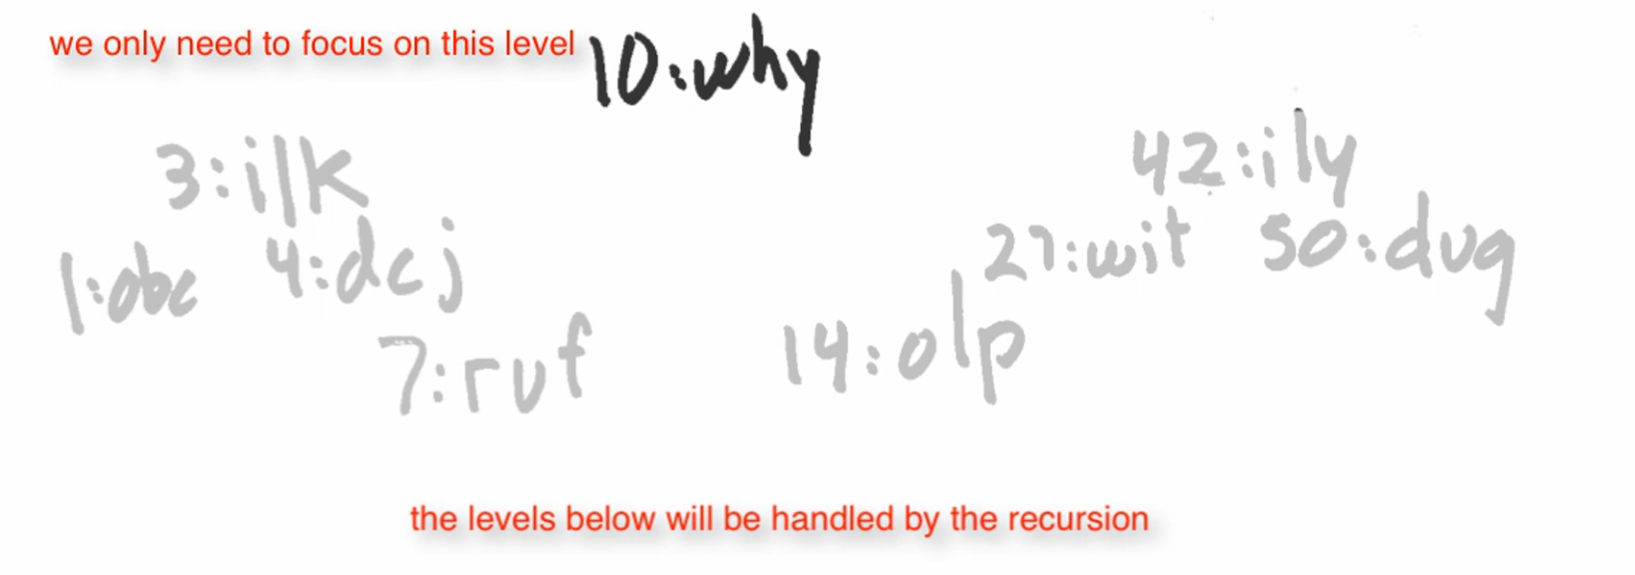 we only need to focus on this level 10:why
3:ilk 42:ily
1:obc 4:dcj 27:wit 50:dug
7:ruf 14:olp
the levels below will be handled by the recursion